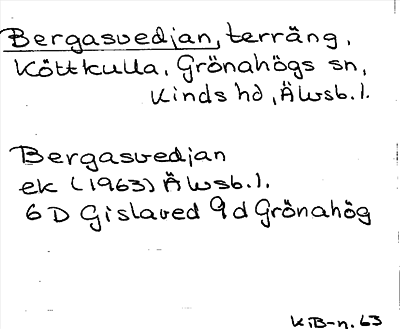 Bergasvedjan, terräng,
Köttkulla, Grönahögs sn,
Kinds hd, Älvsb. l.
Bergasvedjan
ek (1963) Älvsb. l.
6 D Gislaved 9 d Grönahög
K.B-n. 63